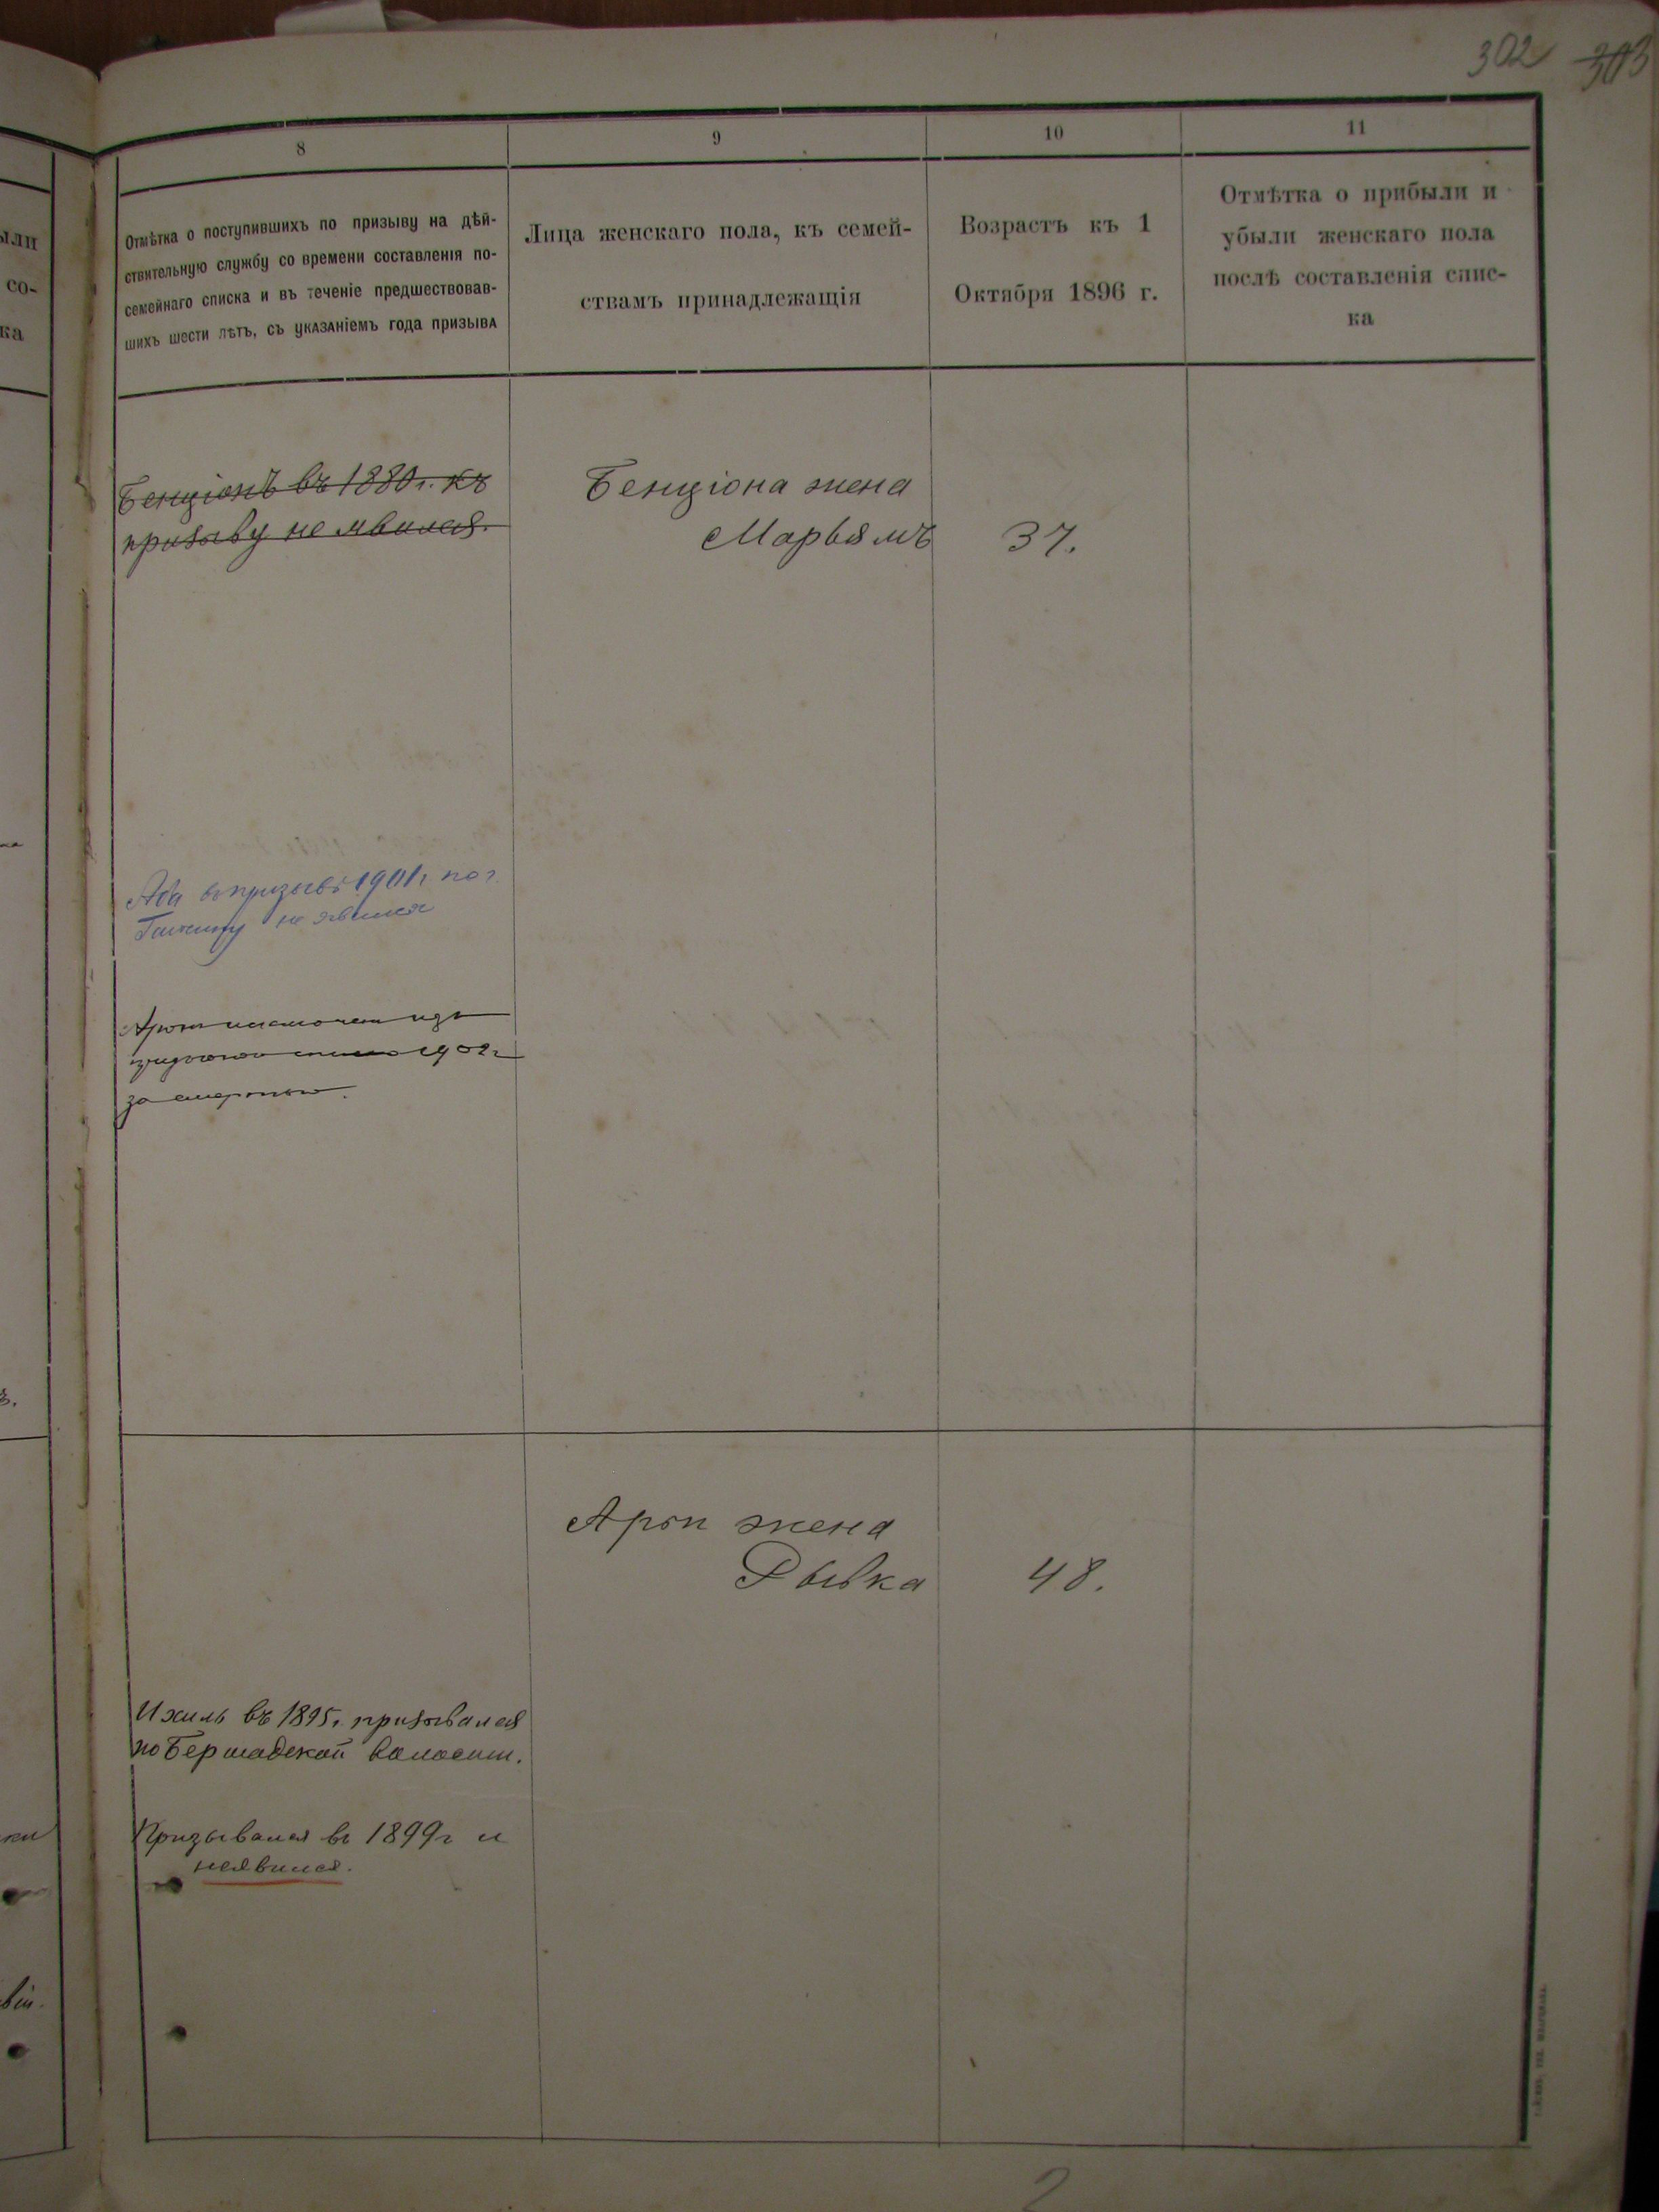 302 303
8
9
10
11
Отмѣтка о поступившихъ по призыву на дѣй-
ствительную службу со времени составленія по-
семейнаго списка и въ теченіе предшествовав-
шихъ шести лѣтъ, съ указаніемъ года призыва
Лица женскаго пола, къ семей-
ствамъ принадлежащія
Возрастъ къ 1
Октября 1896 г.
Отмѣтка о прибыли и
убыли женскаго пола
послѣ составленія спис-
ка
Бенціонъ въ 1880 г. къ
призыву не явился.
Бенціона жена
Марьямъ 37.
въ призывъ 1901 г. по г.
не явился
Арон исключен изъ
1902 г
за смертью.
Арон жена
Рывка 48.
Ихиль въ 1895 г. призывался
по Бершадской волости.
Призывался въ 1899 г и
неявился.
2